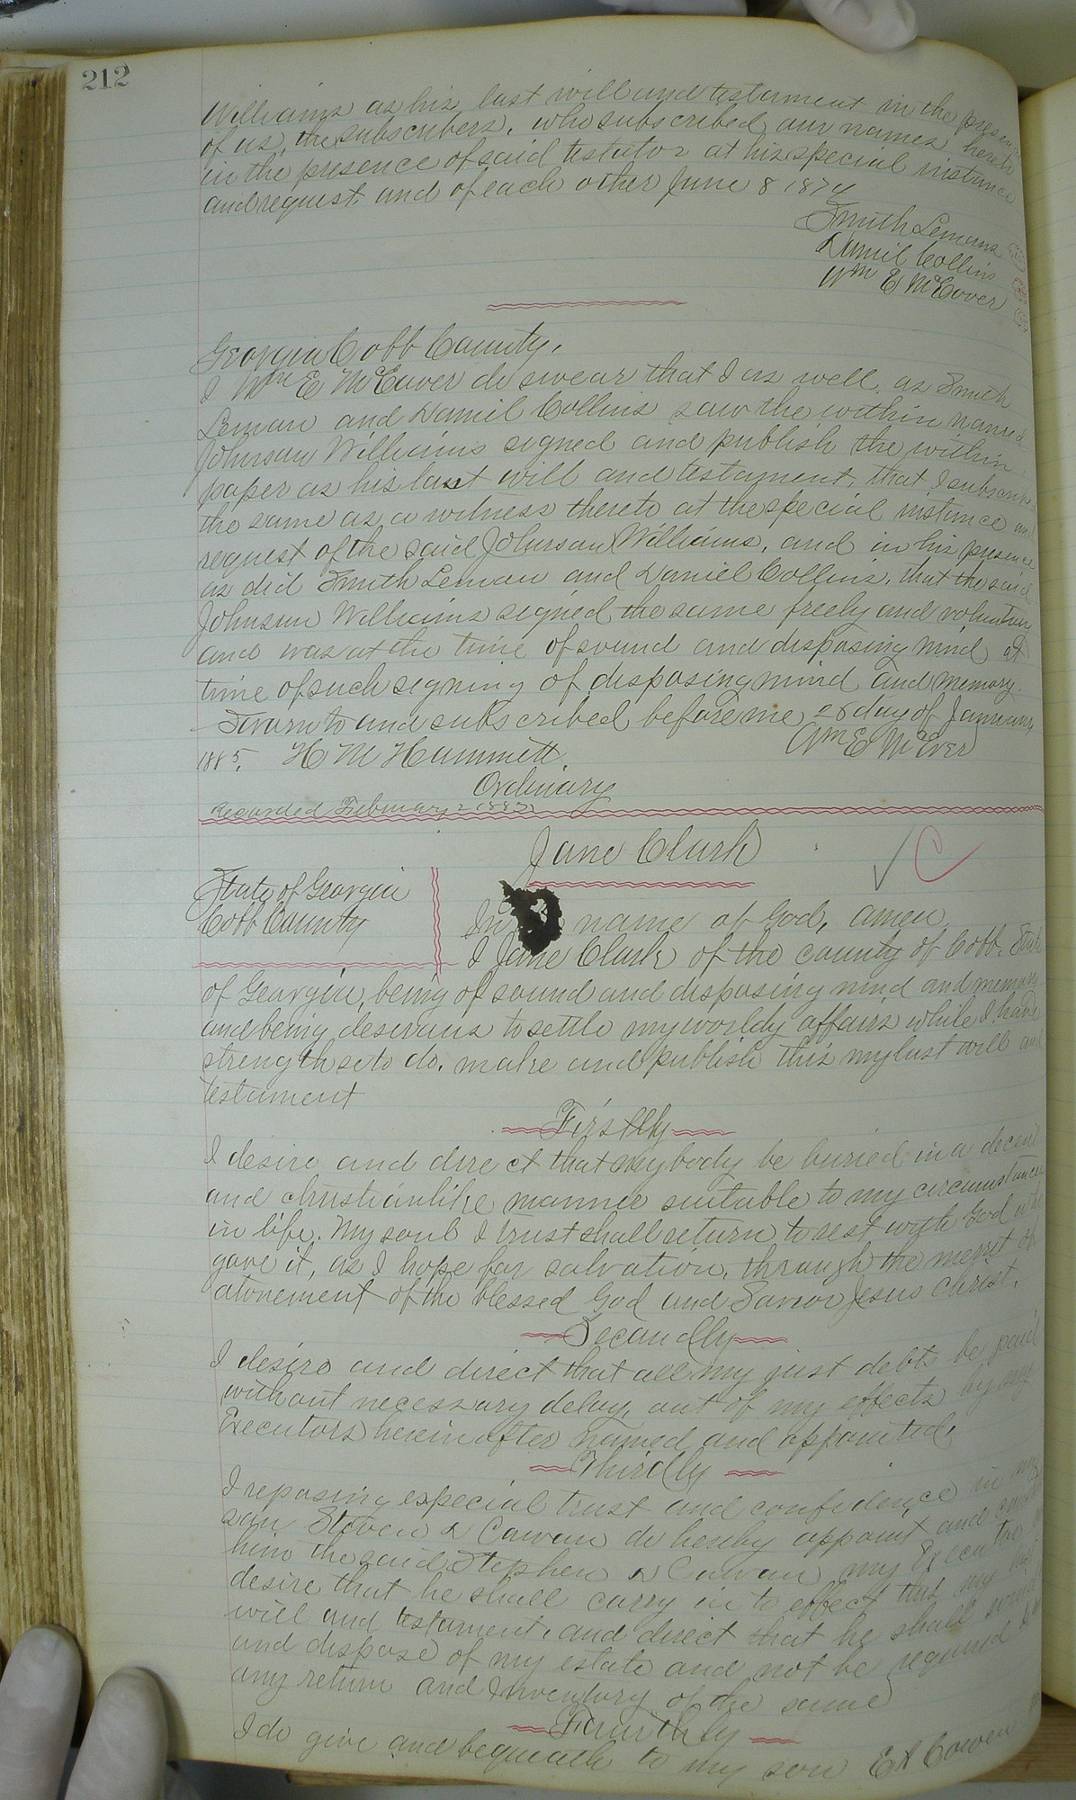 212
Williams as his last will and testament in the presen
of us, the subscribers, who subscribed our names hereto
in the presence of said testator at his special instance
and request and of each other June 8 1874
Smith Lemans
Daniel Collins
Wm E McEver
Georgia Cobb County,
I Wm E McEuver do swear that I as well as Smith
Leman and Daniel Collins saw the within named
Johnson Williams signed and publish the within
paper as his last will and testament, that I subscribe
the same as a witness thereto at the special instance and
request of the said Johnson Williams, and in his presence
as did Smith Leman and Daniel Collins, that the said
Johnson Williams signed the same freely and voluntary
and was at the time of sound and disposing mind at
time of such signing of disposing mind and memory.
Sworn to and subscribed before me 28 day of January
1885. H M Hammett Wm E McEver
Ordinary
Recorded February 2 1885
Jane Clark C
State of Georgia
Cobb County
In name of God, amen,
I Jane Clark of the county of Cobb. State
of Georgia, being of sound and disposing mind and memory
and being desirous to settle my worldy affairs while I have
strength so to do. make and publish this my last will and
testament
Firstly
I desire and direct that my body be buried in a decent
and christianlike manner suitable to my circumstances
in life. My soul I trust shall return to rest with God who
gave it, as I hope for salvation, through the merit &
atonement of the blessed God and Savior Jesus Christ.
Secondly
I desire and direct that all my just debts be paid
without necessary delay, out of my effects by my
Executors herein after named and appointed,
Thirdly
I reposing especial trust and confidence in my
son Steven A Cowan do hereby appoint and
him the said Stephen A Cowan my Executor
desire that he shall carry in to effect this my last
will and testament, and direct that he shall
and dispose of my estate and not be required to
any return and Inventory of the same
Fourthly
I do give and bequeath to my son E A Cowen